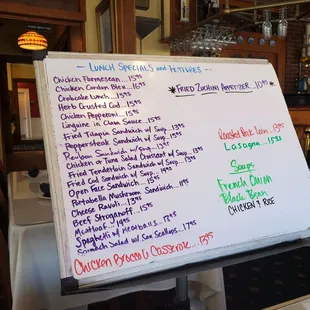 - LUNCH SPECIALS AND FEATURES -
Chicken Parmesean...15.95
Chicken Cordon Bleu...16.95
Crabcake Lunch...15.95
Herb Crusted Cod...15.95
Chicken Pepperoni...15.95
Linguine in Clam Sauce...15.95
Fried Tilapia Sandwich w/ Soup...13.95
Peppersteak Sandwich w/ Soup...13.95
Reuben Sandwich w/ Soup...13.95
Chicken or Tuna Salad Croissant w/ Soup...13.95
Fried Tenderloin Sandwich w/ Soup...13.95
Fried Cod Sandwich w/ Soup...14.95
Open Face Sandwich...15.95
Portabella Mushroom Sandwich...14.95
Cheese Ravoli...13.95
Beef Stroganoff...15.95
Meatloaf...14.95
Spaghetti w/ Meatballs...13.95
Spinach Salad w/ Sea Scallops...17.95
Chicken Broccoli Casserole...13.95
Fried Zucchini Appetizer 10.95
Roasted Pork Loin...13.95
Lasagna...15.95
Soups
French Onion
Black Bean
CHICKEN & RICE